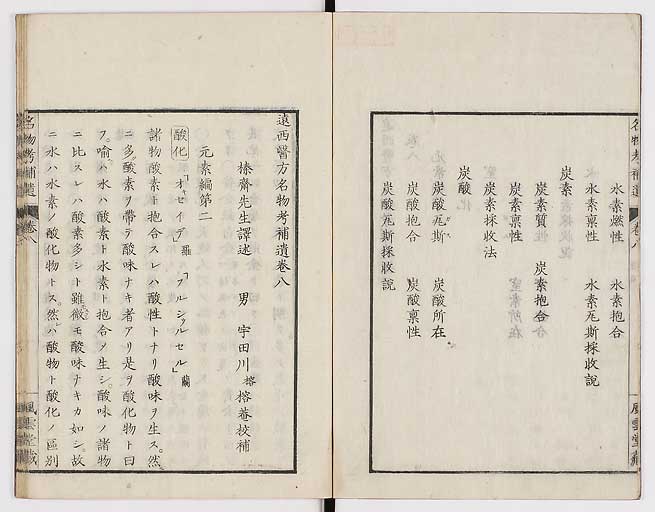 名物考補遺
卷八
風雲堂藏
水素燃性　水素抱合
水素稟性　水素瓦斯採收説
炭素
炭素質性　炭素抱合
炭素稟性
炭素採收法
炭酸
炭酸瓦斯　炭酸所在
炭酸抱合　炭酸稟性
炭酸瓦斯採收説
遠西醫方名物考補遺卷八
榛齋先生譯述　男　宇田川榕榕菴校補
元素編第二
酸化「オキセイデ」羅「フルシュルセル」蘭
諸物酸素ト抱合スレハ酸性トナリ酸味ヲ生ス。然
ニ多酸素ヲ帶テ酸味ナキ者アリ是ヲ酸化物ト曰
フ。喩ハ水ハ酸素ト水素ト抱合メ生シ。酸味ノ諸物
ニ比スレハ酸素多シト雖微モ酸味ナキカ如シ。故
ニ水ハ水素ノ酸化物トス。然ハ酸物ト酸化ノ區別
名物考補遺
卷八
風雲堂藏